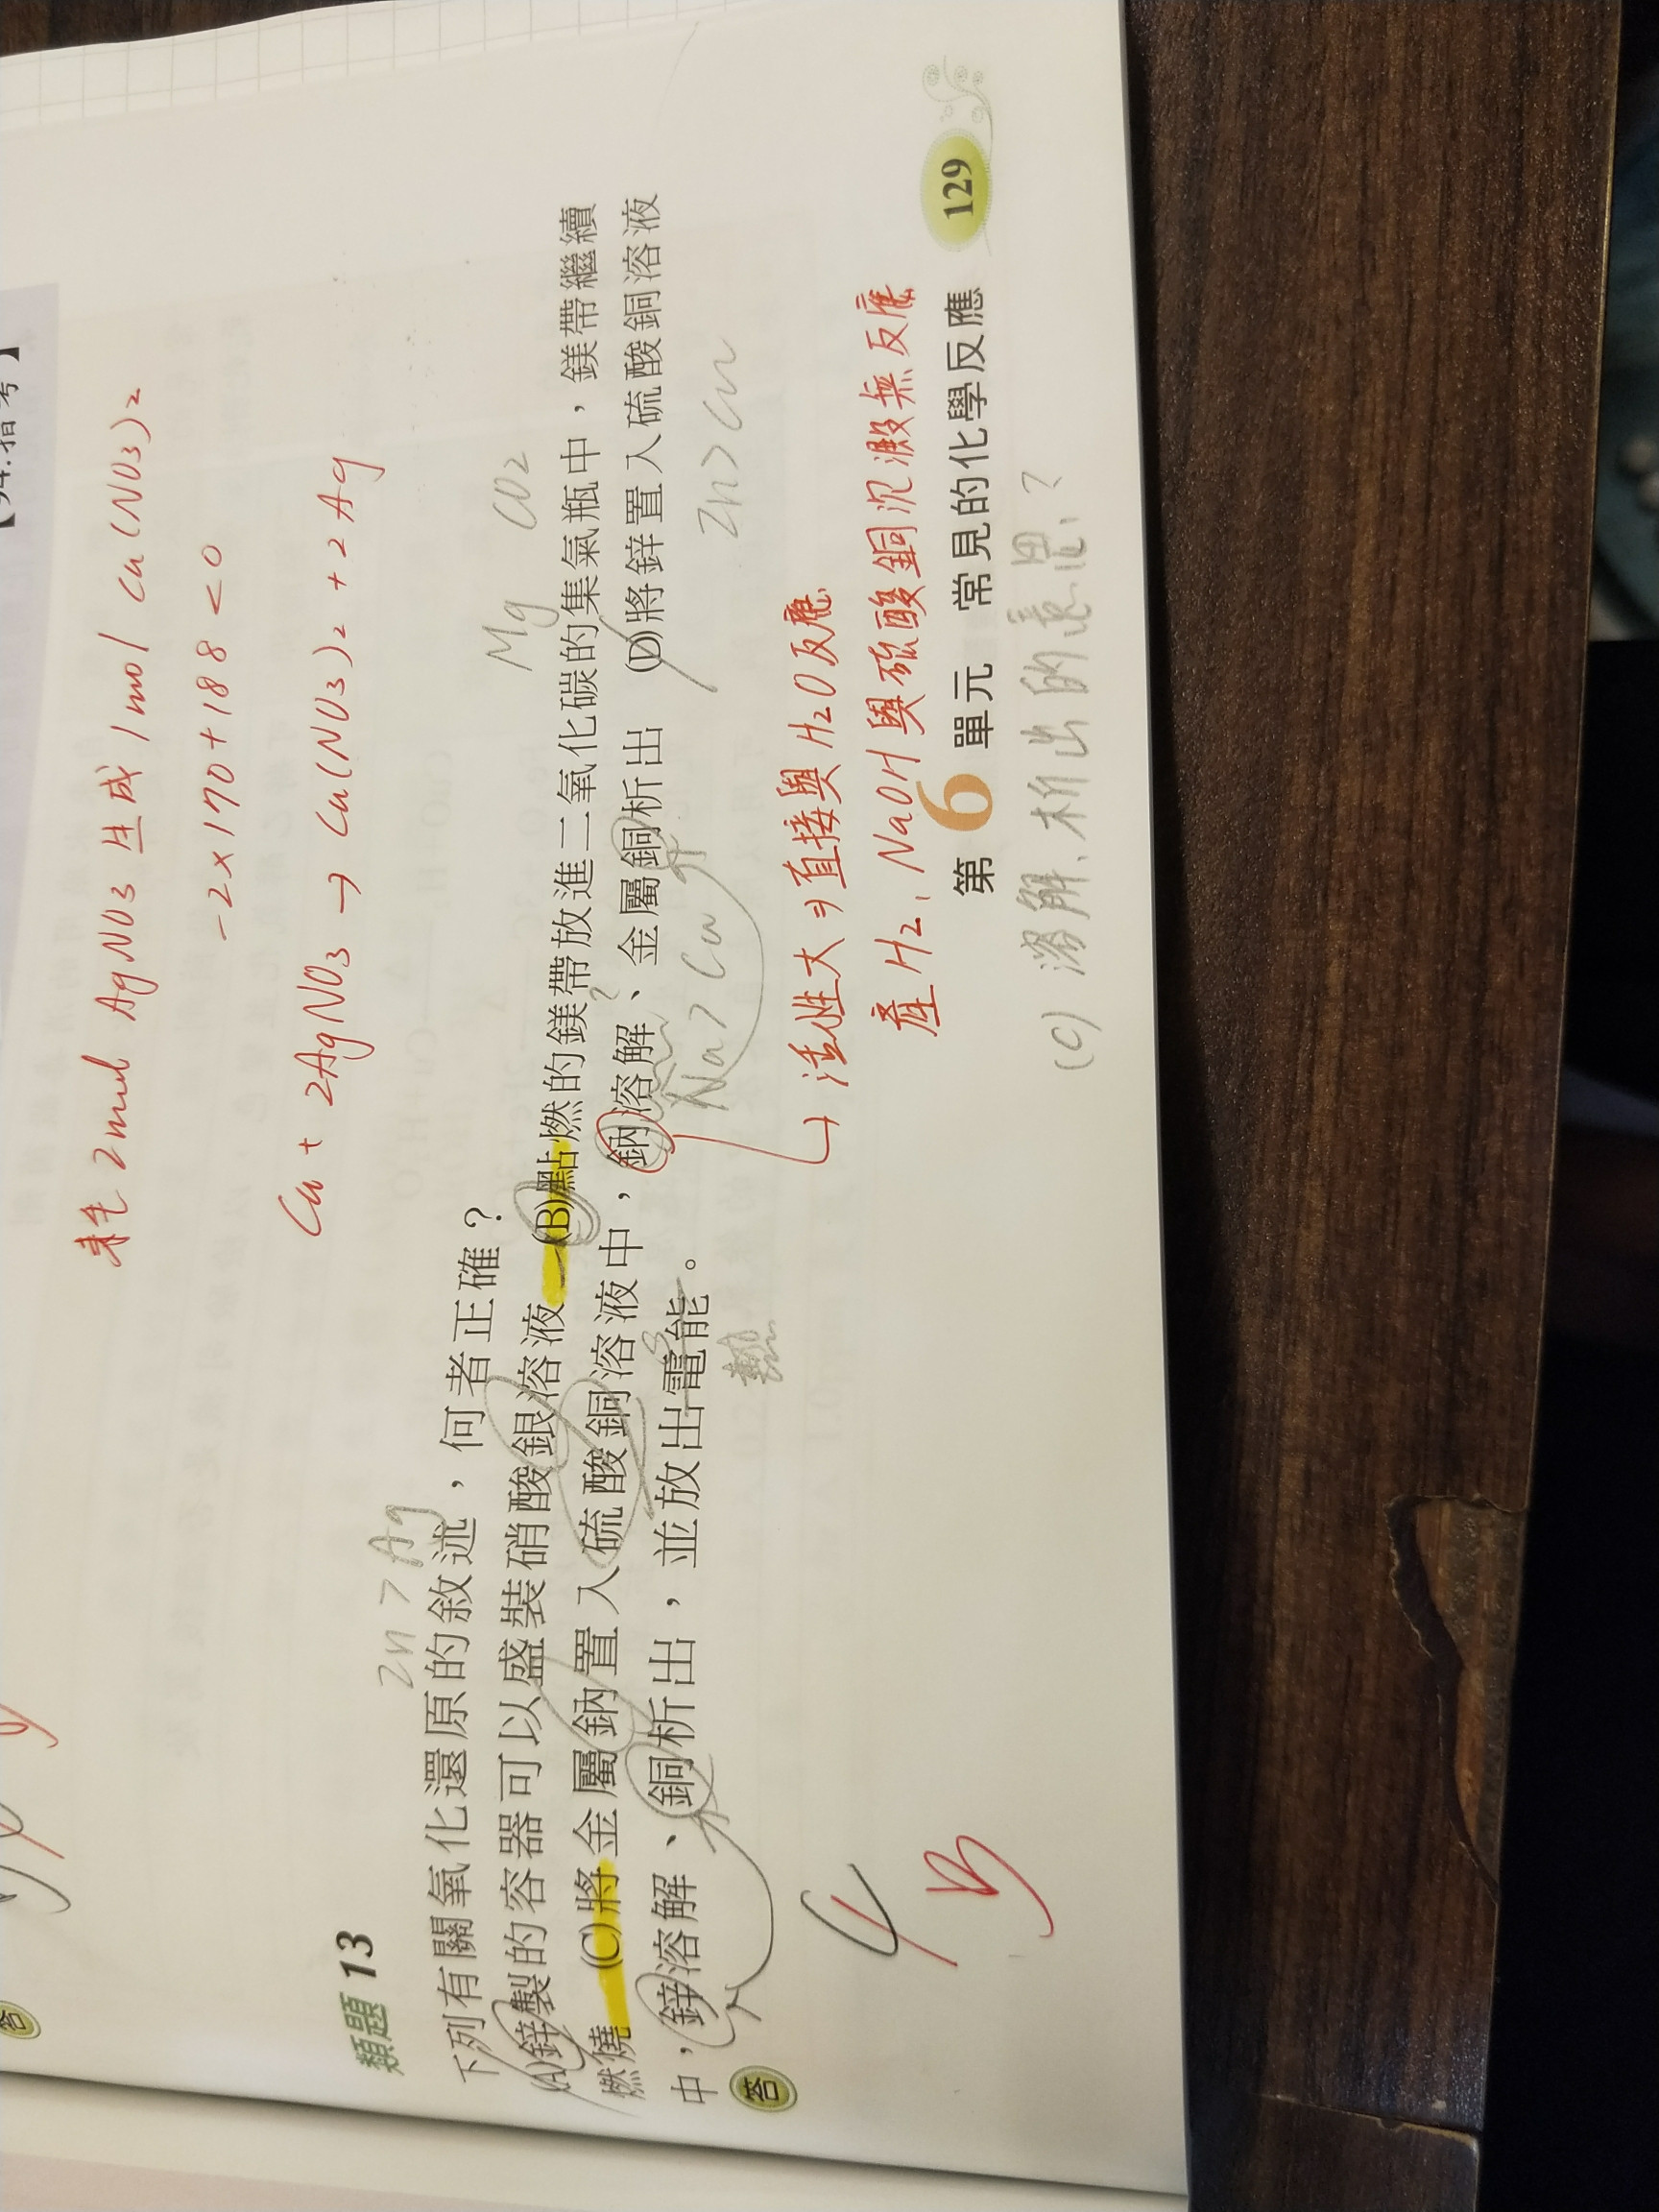 【94.指考】
耗2mol AgNO3生成1mol Cu(NO3)2
-2×170+188<0
Cu+2AgNO3→Cu(NO3)2+2Ag
類題 13
Zn>Ag
下列有關氧化還原的敘述，何者正確？
Mg CO2
(A)鋅製的容器可以盛裝硝酸銀溶液 (B)點燃的鎂帶放進二氧化碳的集氣瓶中，鎂帶繼續
燃燒 (C)將金屬鈉置入硫酸銅溶液中，鈉溶解、金屬銅析出 (D)將鋅置入硫酸銅溶液
Na>Cu
Zn>Cu
中，鋅溶解、銅析出，並放出電能。
熱
答
4
B
活性大⇒直接與H2O反應
產H2, NaOH與硫酸銅沉澱無反應
第6單元 常見的化學反應
129
(C) 溶解.析出的意思?